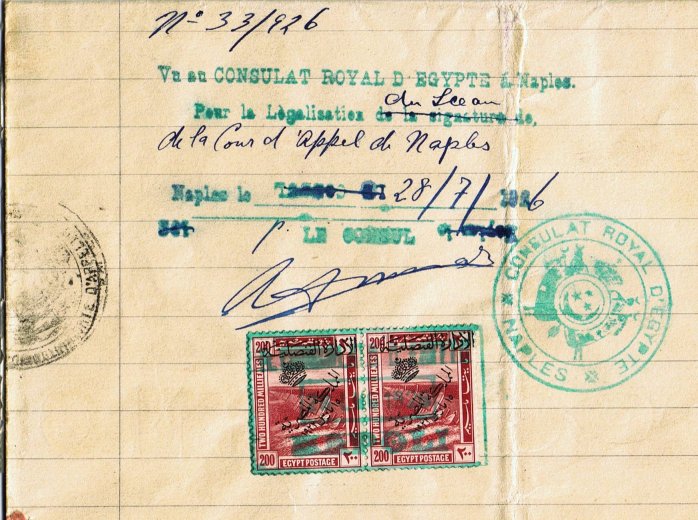 N° 33/926
Vu au CONSULAT ROYAL D'EGYPTE á Naples.
Pour la Légalisation de la signature de,
du Sceau
de la Cour d'Appel di Naples
Naples le 28/7/1926
p. LE CONSUL
CONSULAT ROYAL D'EGYPTE
NAPLES
الإدارة القنصلية
TWO HUNDRED MILLIEMES
200
EGYPT POSTAGE
٢٠٠
الإدارة القنصلية
TWO HUNDRED MILLIEMES
200
EGYPT POSTAGE
٢٠٠